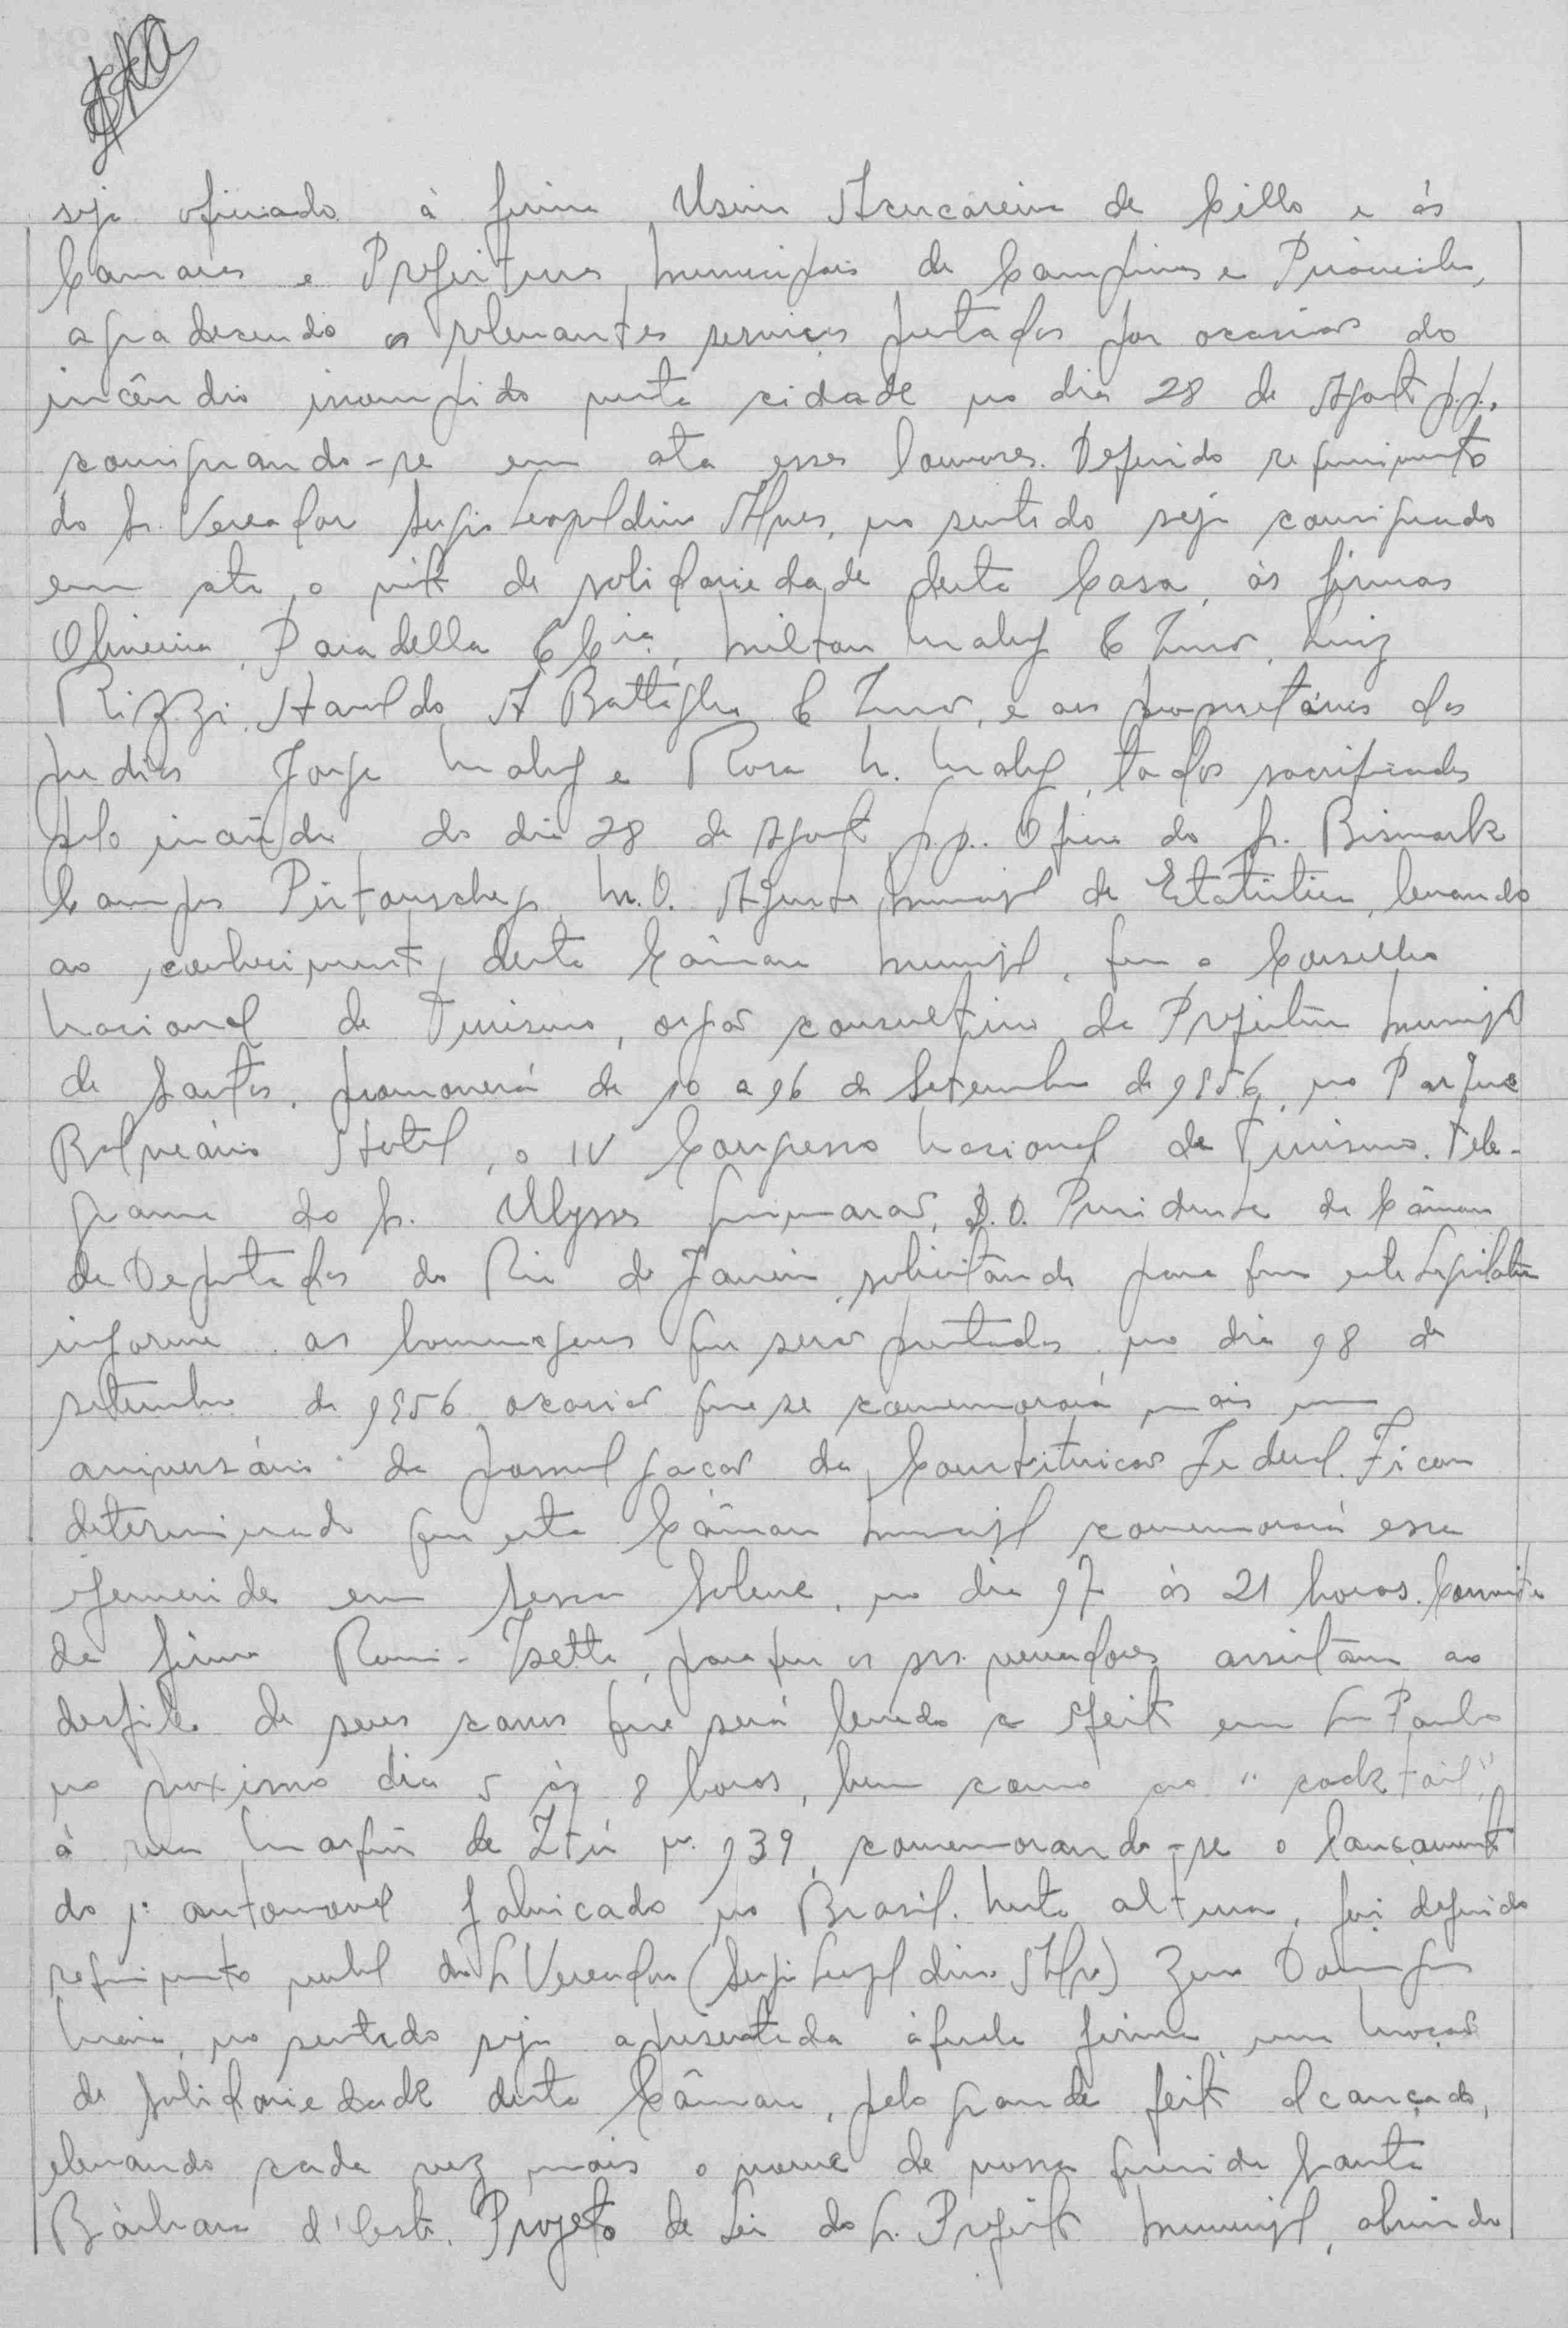 seja oficiado à firma Usina Açucareira de Cillo e às
Camaras e Prefeituras Municipais de Campinas e Piracicaba,
agradecendo os relevantes serviços prestados por ocasião do
incêndio irrompido nesta cidade no dia 28 de Agosto p.p.,
consignando-se em ata esses louvores. Deferido requerimento
do Sr. Vereador Sergio Leopoldino Alves, no sentido seja consignado
em ata, o voto de solidariedade desta Casa, às firmas
Oliveira, Paradella & Cia, Milton Maluf & Irmão, Luiz
Rizzi, Haroldo A Battaglia & Irmão, e aos proprietários dos
predios Jorge Maluf e Rosa M. Maluf, todos sacrificados
pelo incêndio, do dia 28 de Agosto p.p.. Oficio do Sr. Bismark
Campos, M.D. Agente Municipal de Estatistica, levando
ao conhecimento desta Câmara Municipal, que o Conselho
Nacional de Turismo, orgão consultivo da Prefeitura Municipal
de Santos, promoverá de 10 a 16 de Setembro de 1956, no Parque
Balneário Hotel, o IV Congresso Nacional de Turismo. Tele-
grama do Sr. Ulysses Guimarães, D.D. Presidente da Câmara
de Deputados do Rio de Janeiro, solicitando para que este Legislativo
informe as homenagens que serão prestadas no dia 18 de
setembro de 1956 ocasião que se comemorará mais um
aniversário da promulgação da Constituição Federal. Ficou
determinado que esta Câmara Municipal comemorará essa
efemeride em Sessão Solene, no dia 17 às 21 horas. Convite
da firma Romi-Isetta, para que os srs. vereadores assistam ao
desfile de seus carros que será levado a efeito em S. Paulo
no proximo dia 5 às 8 horas, bem como ao "cocktail",
à rua Martim de Itú n. 139, comemorando-se o lançamento
do 1º automovel fabricado no Brasil. Nesta altura, foi deferido
requerimento verbal do Sr Vereador (Sergio Leopoldino Alves) Domingos
Maia, no sentido seja apresentada àquela firma uma Moção
de Solidariedade desta Câmara, pelo grande feito alcançado,
elevando cada vez mais o nome de nossa querida Santa
Bárbara d'Oeste. Projeto de Lei do Sr. Prefeito Municipal, abrindo